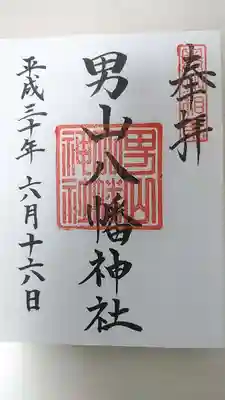 奉拝
男山八幡神社
平成三十年 六月十六日